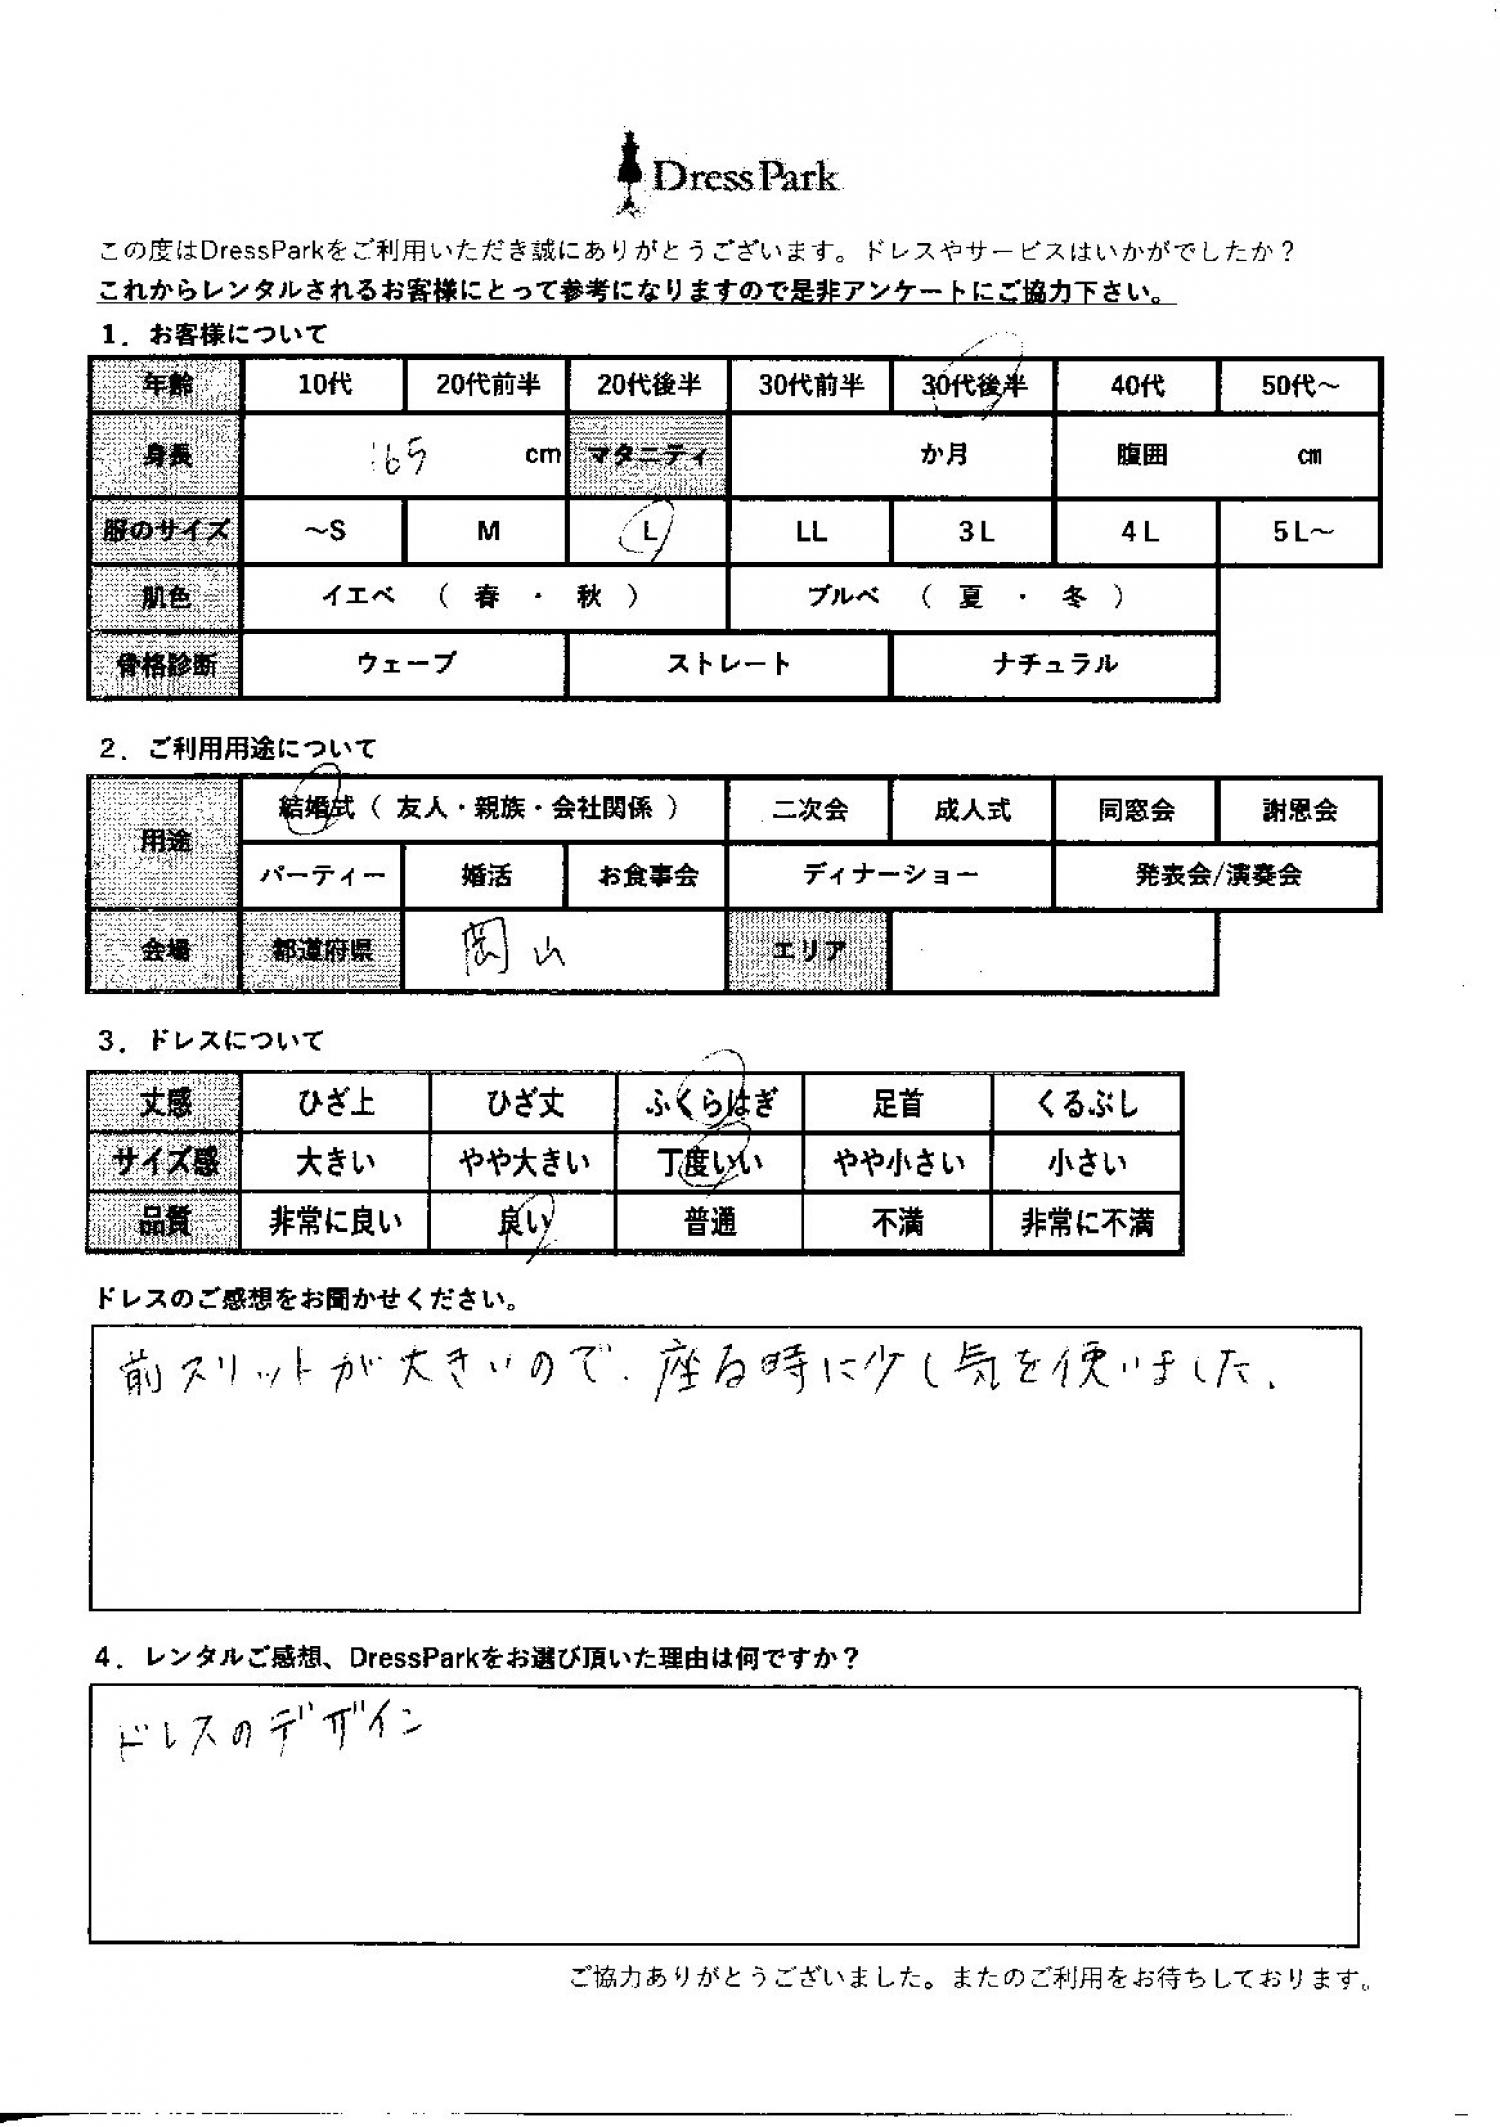 DressPark
この度はDressParkをご利用いただき誠にありがとうございます。ドレスやサービスはいかがでしたか？
これからレンタルされるお客様にとって参考になりますので是非アンケートにご協力下さい。
1．お客様について
年齢 10代 20代前半 20代後半 30代前半 30代後半 40代 50代～
身長 165 cm マタニティ か月 腹囲 cm
服のサイズ ～S M L LL 3L 4L 5L～
肌色 イエベ （ 春 ・ 秋 ） ブルベ （ 夏 ・ 冬 ）
骨格診断 ウェーブ ストレート ナチュラル
2．ご利用用途について
用途 結婚式（ 友人・親族・会社関係 ） 二次会 成人式 同窓会 謝恩会
パーティー 婚活 お食事会 ディナーショー 発表会/演奏会
会場 都道府県 岡山 エリア
3．ドレスについて
丈感 ひざ上 ひざ丈 ふくらはぎ 足首 くるぶし
サイズ感 大きい やや大きい 丁度いい やや小さい 小さい
品質 非常に良い 良い 普通 不満 非常に不満
ドレスのご感想をお聞かせください。
前スリットが大きいので、座る時に少し気を使いました。
4．レンタルご感想、DressParkをお選び頂いた理由は何ですか？
ドレスのデザイン
ご協力ありがとうございました。またのご利用をお待ちしております。